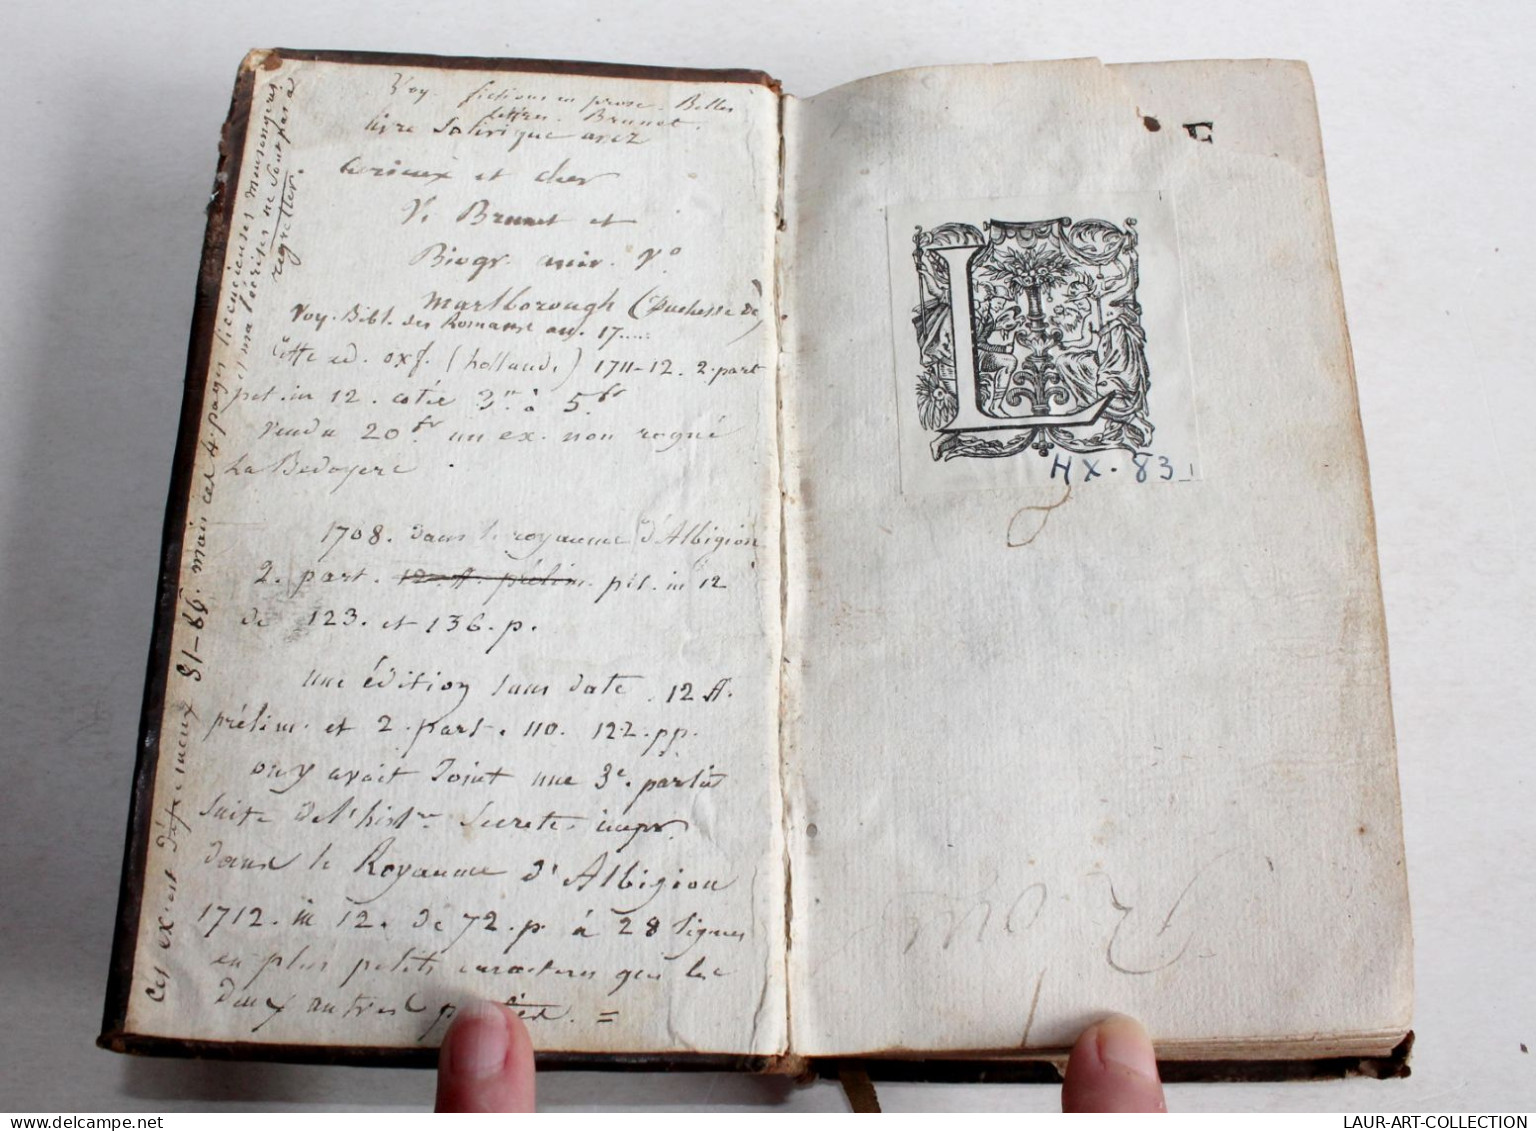 Voy. fictions en prose. Belles
lettres. Brunet.
livre Satirique assez
curieux et cher
V. Brunet et
Biogr. univ. Vo
Marlborough (Duchesse de)
Voy. Bibl. des Romans an. 17....
Cette ed. oxf. (hollande) 1711-12. 2. part
pet. in 12. cotée 3 à 5. fr
vendu 20 fr un ex. non rogné
La Bedoyere
1708. dans le royaume d'Albigion
2. part. 12 ff. prélim. pet. in 12
de 123. et 136. p.
une édition sans date. 12 ff.
prélim. et 2. part. 110. 122. pp.
on y avait Joint une 3e. partie
Suite de l'histre Secrete, impr.
dans le Royaume d'Albigion
1712. in 12. de 72. p. à 28 lignes
en plus petits caracteres que les
deux autres parties. =
Cet ex. est défectueux 81-86. mais ces 4. pages licencieuses mensongeres
et mal écrites ne sont pas à
regretter.
L
HX. 83
E